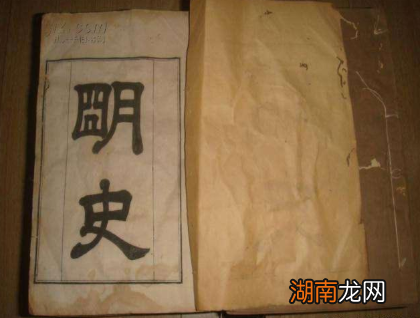 朙
史
湖南龙网